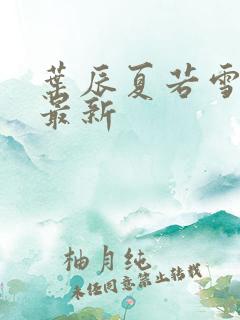 叶辰夏若雪
最新
柚月纯
未经同意禁止转载